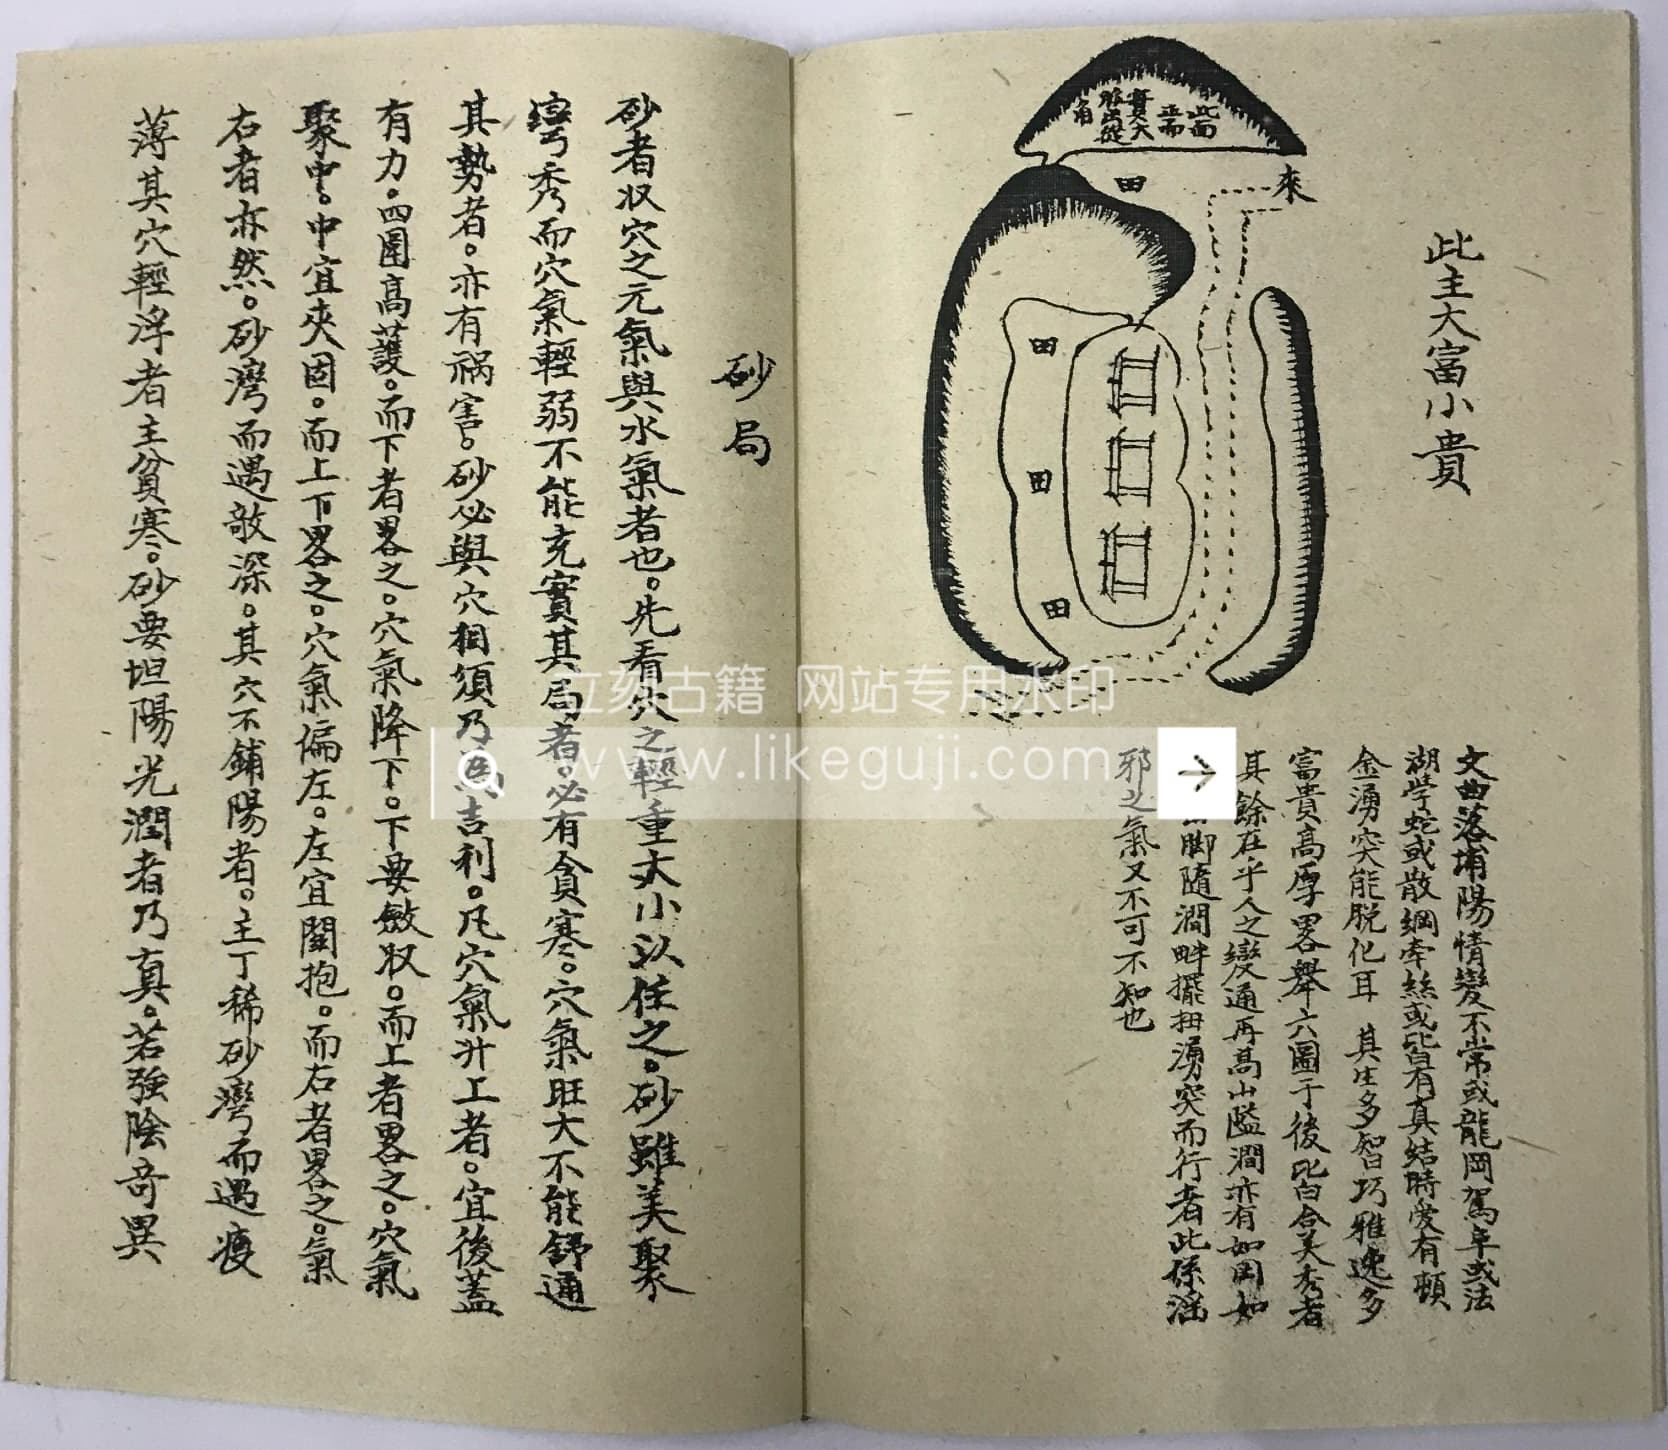 此主大富小貴
來
田
田
田
田
此面
立而
實大
角
文曲落埔陽情變不常或龍岡駕阜或法
湖學蛇或散綱牽絲或皆有真結時愛有頓
金湧突能脱化耳 其生多智巧雅逸多
富貴高厚畧舉六圖于後比白合美秀者
其餘在乎人之變通再高山隘澗亦有如岡如
脚隨澗畔擺扭湧突而行者此係滛
邪之氣又不可不知也
砂局
砂者収穴之元氣與水氣者也。先看穴之輕重大小以任之。砂雖美聚
彎秀而穴氣輕弱不能充實其局者。必有貪寒。穴氣旺大不能舒通
其勢者。亦有禍害。砂必與穴相須乃為吉利。凡穴氣升上者。宜後蓋
有力。四圍高護。而下者畧之。穴氣降下。下要斂収。而上者畧之。穴氣
聚中。中宜夾固。而上下畧之。穴氣偏左。左宜關抱。而右者畧之。氣
右者亦然。砂灣而遇敧深。其穴不鋪陽者。主丁稀砂灣而遇瘦
薄其穴輕浮者主貧寒。砂要坦陽光潤者乃真。若強陰奇異
立刻古籍 网站专用水印
www.likeguji.com